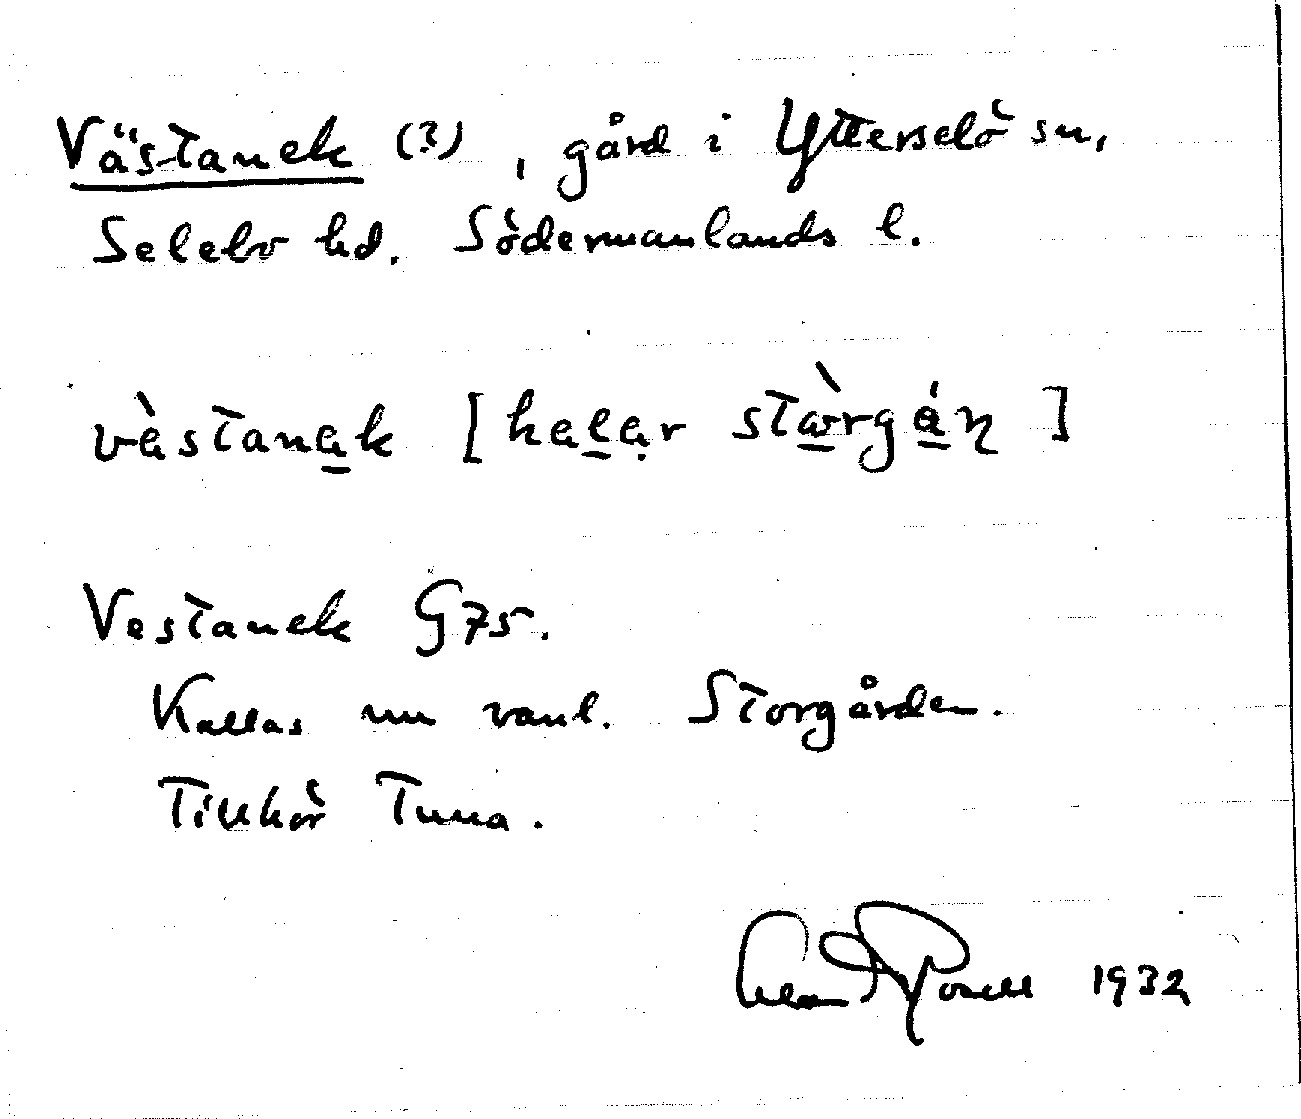 Västanek (3), gård i Ytterselö sn,
Selebo hd. Södermanlands l.
vàstana̲k [hael̲ạr stòrgán]
Vestanek G75.
Kallas nu vanl. Storgården.
Tillhör Tuna.
1932